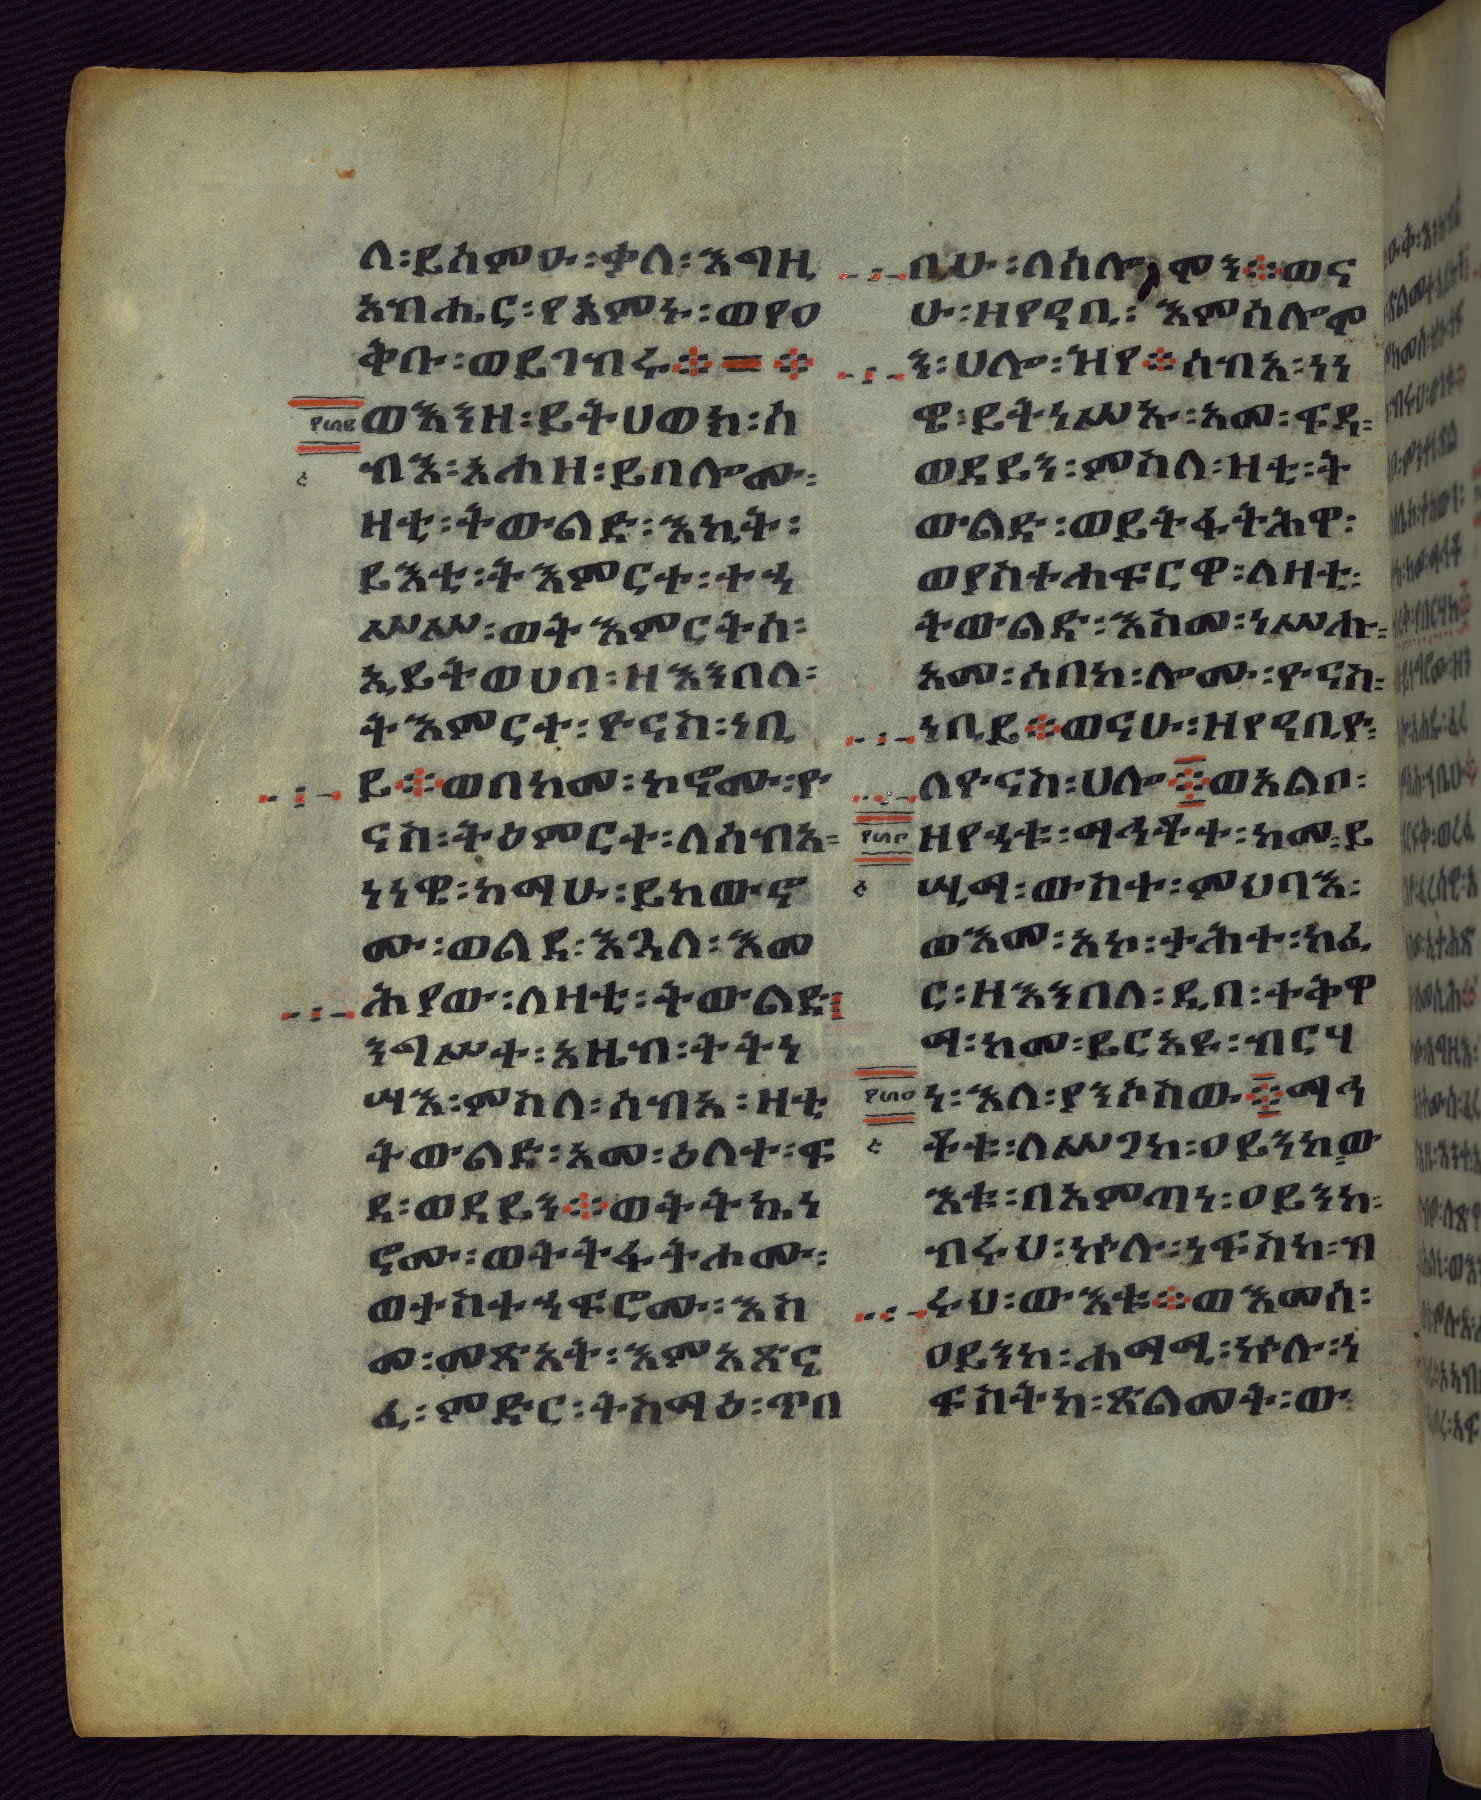 ለ፡ይሰምዑ፡ቃለ፡እግዚ
አብሔር፡የአምኑ፡ወየዐ
ቅቡ፡ወይገብሩ፨ = ፨
ወእንዘ፡ይትሀወክ፡ሰ
ብእ፡አሐዘ፡ይበሎሙ፡
ዛቲ፡ትውልድ፡እኪት፡
ይእቲ፡ትእምርተ፡ተኃ
ሥሥ፡ወትእምርትሰ፡
ኢይትወሀባ፡ዘእንበለ፡
ትእምርተ፡ዮናስ፡ነቢ
ይ፨ወበከመ፡ኮኖሙ፡ዮ
ናስ፡ትዕምርተ፡ለሰብአ፡
ነነዌ፡ከማሁ፡ይከውኖ
ሙ፡ወልደ፡እጓለ፡እመ
ሕያው፡ለዛቲ፡ትውልድ፨
ንግሥተ፡አዜብ፡ትትነ
ሣእ፡ምስለ፡ሰብአ፡ዛቲ
ትውልድ፡አመ፡ዕለተ፡ፍ
ዳ፡ወደይን፨ወትትኬነ
ኖሙ፡ወትትፋትሐሙ፡
ወታስተኃፍሮሙ፡እስ
መ፡መጽአት፡እምአጽና
ፊ፡ምድር፡ትስማዕ፡ጥበ
ቢሁ፡ለሰሎሞን፨ወና
ሁ፡ዘየዓቢ፡እምሰሎሞ
ን፡ሀሎ፡ዝየ፨ሰብአ፡ነነ
ዌ፡ይትነሥኡ፡አመ፡ፍዳ፡
ወደይን፡ምስለ፡ዛቲ፡ት
ውልድ፡ወይትፋትሕዋ፡
ወያስተሐፍርዋ፡ለዛቲ፡
ትውልድ፡እስመ፡ነሥሑ፡
አመ፡ሰበከ፡ሎሙ፡ዮናስ፡
ነቢይ፨ወናሁ፡ዘየዓቢዮ፡
ለዮናስ፡ሀሎ፨ወአልቦ፡
ዘየኃቱ፡ማኅቶተ፡ከመ፡ይ
ሢማ፡ውስተ፡ምህባእ፡
ወእመ፡አኮ፡ታሕተ፡ከፈ
ር፡ዘእንበለ፡ዲበ፡ተቅዋ
ማ፡ከመ፡ይርአዩ፡ብርሃ
ነ፡እለ፡ያንሶስው፨ማኅ
ቶቱ፡ለሥጋከ፡ዐይንከ፡ው
እቱ፡በአምጣነ፡ዐይንከ፡
ብሩህ፡ኵሉ፡ነፍስከ፡ብ
ሩህ፡ውእቱ፨ወእመሰ፡
ዐይንከ፡ሐማሚ፡ኵሉ፡ነ
ፍስትከ፡ጽልመት፡ው